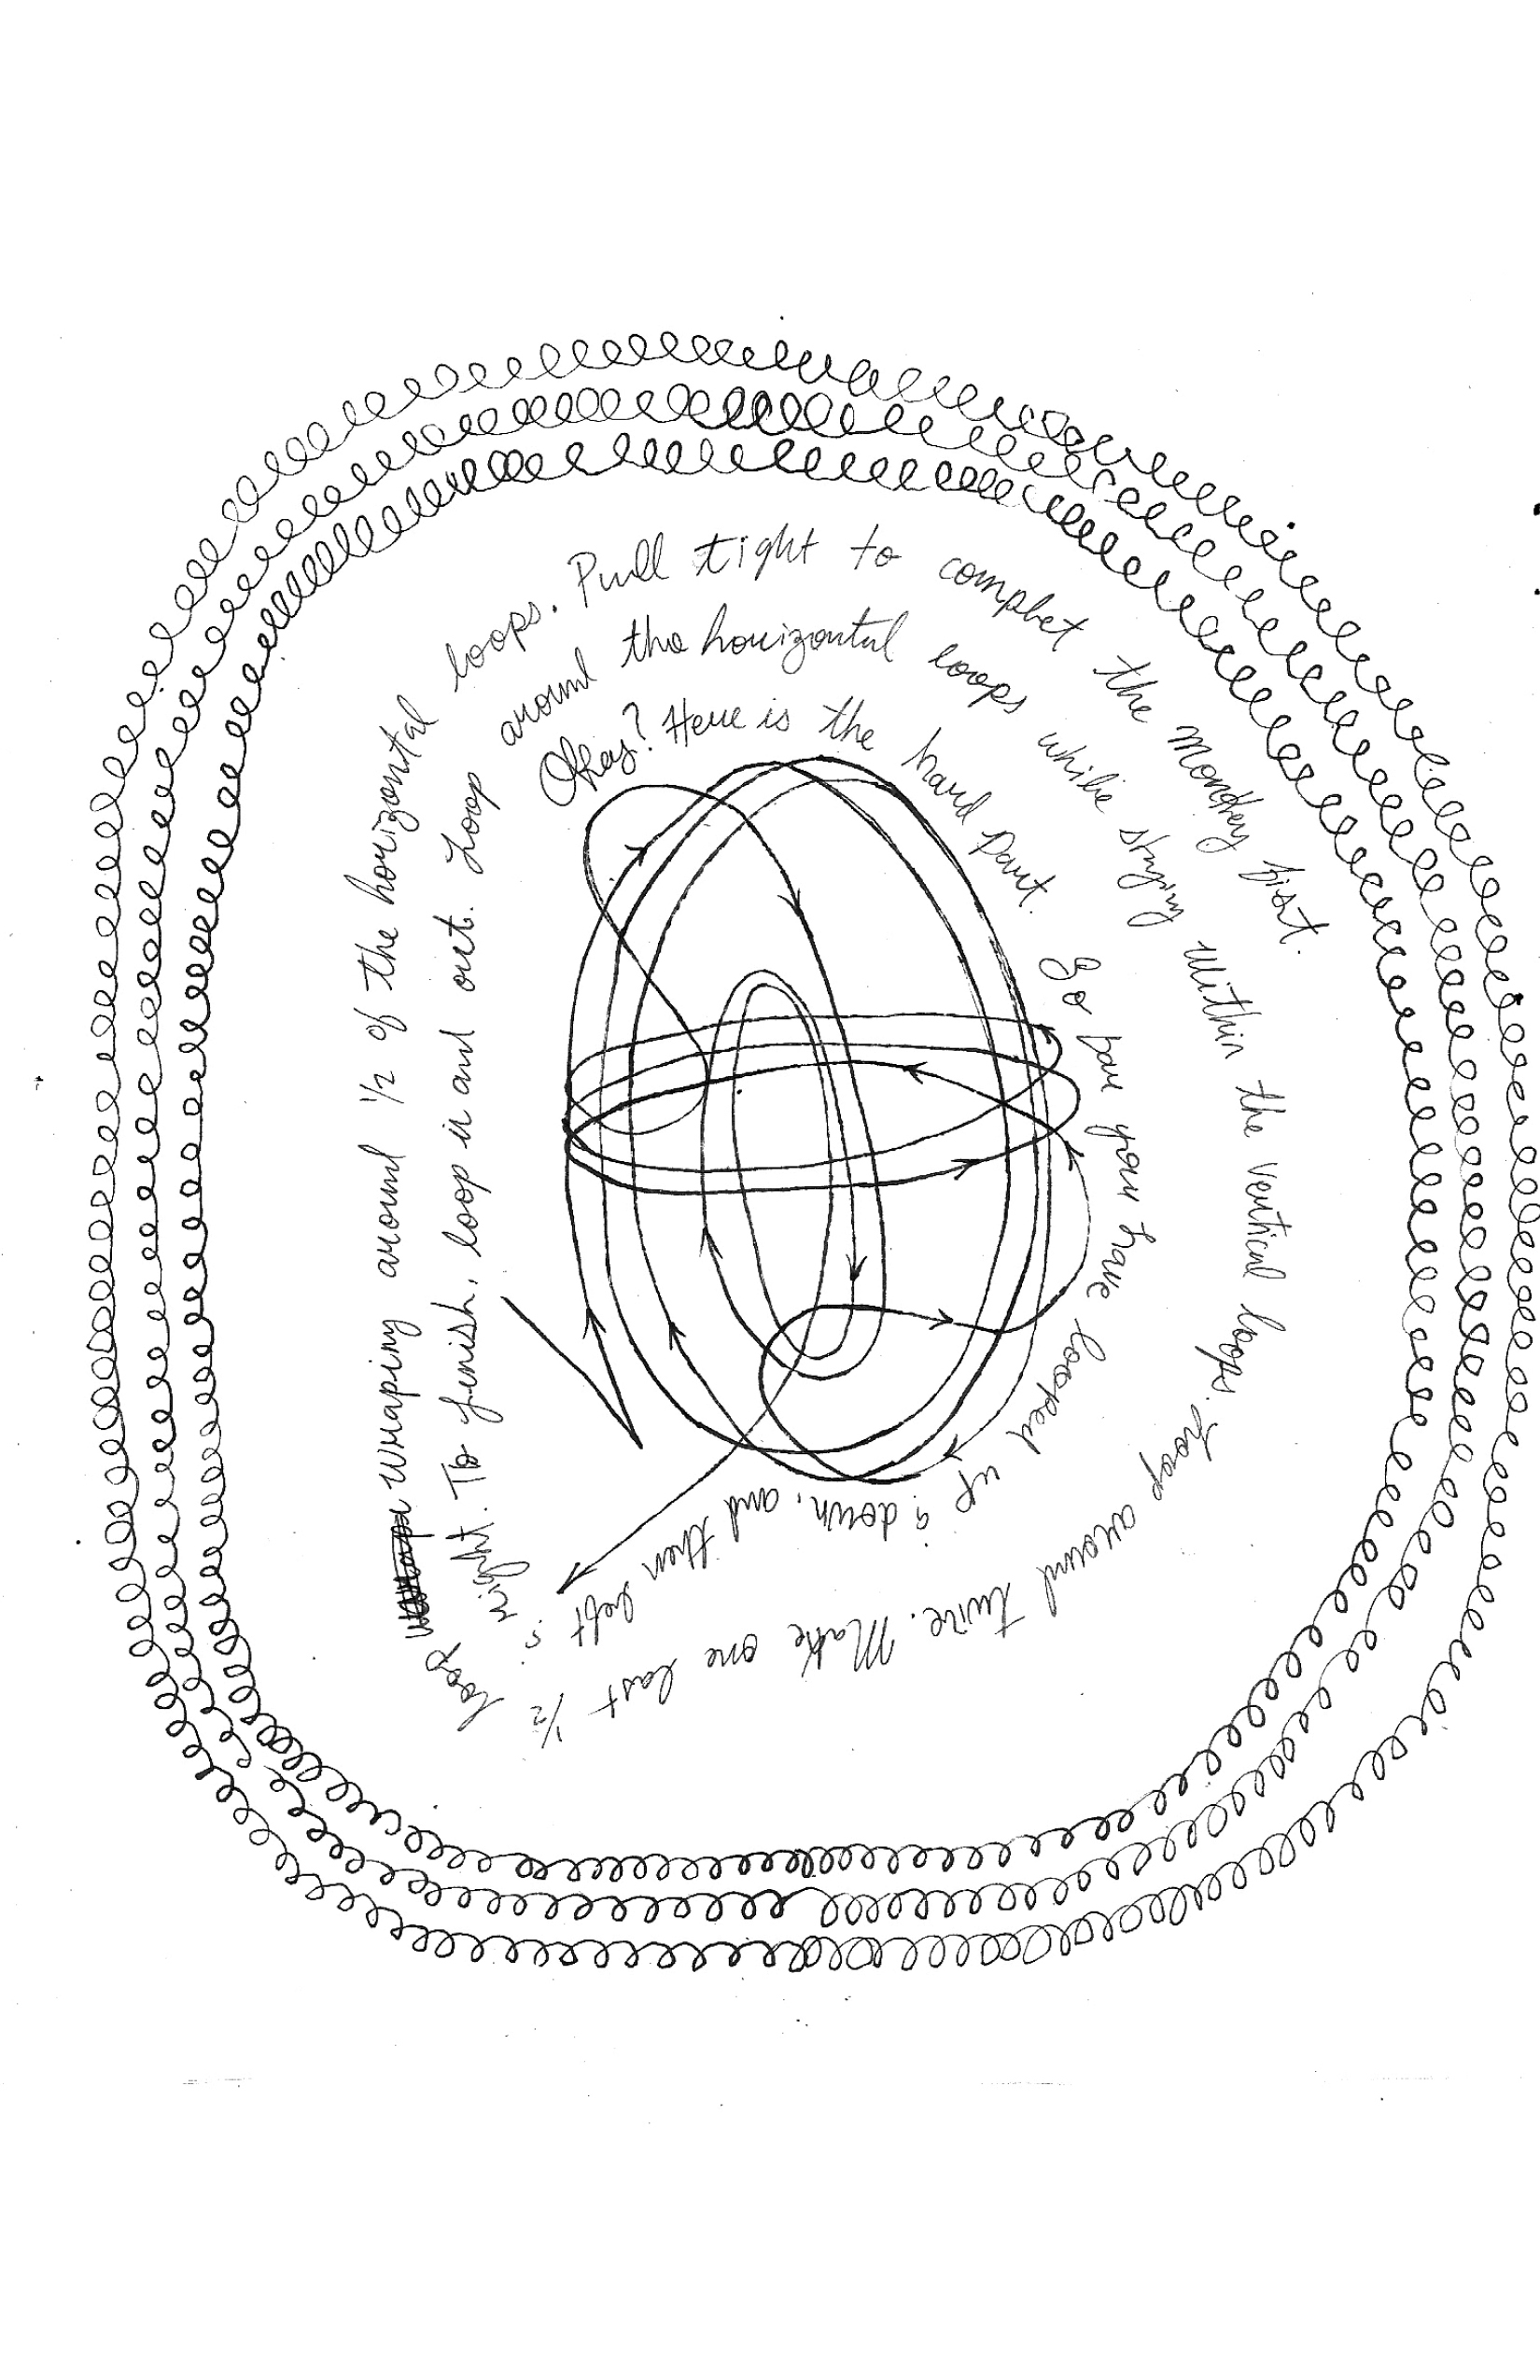 Okay? Here is the hard part. So far you have looped up & down, and then left & right. To finish, loop in and out. Loop
around the horizontal loops while stying within the vertical loops. Loop around twice. Make one last 1/2 loop wraping around 1/2 of the horizontal
loops. Pull tight to complet the monkey fist.